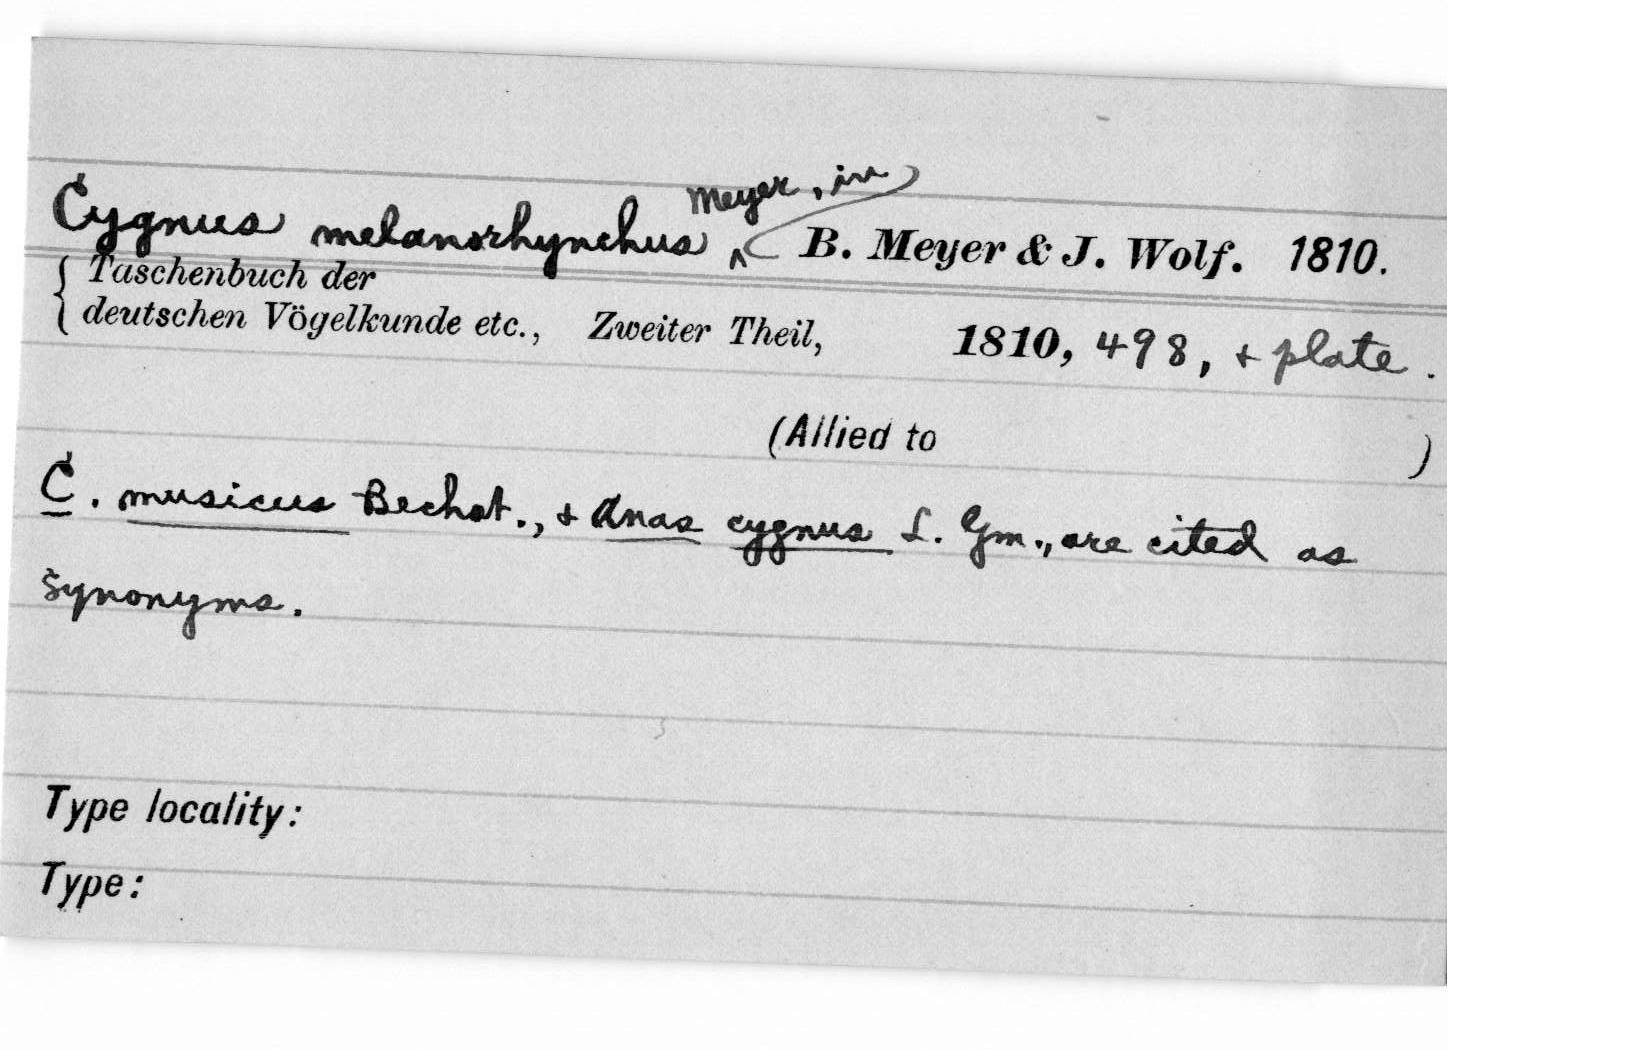 Cygnus melanorhynchus ^ Meyer, in B. Meyer & J. Wolf. 1810.
{ Taschenbuch der
deutschen Vögelkunde etc., Zweiter Theil, 1810, 498, + plate.
(Allied to )
C. musicus Bechst., + Anas cygnus L. Gm., are cited as
synonyms.
Type locality:
Type: